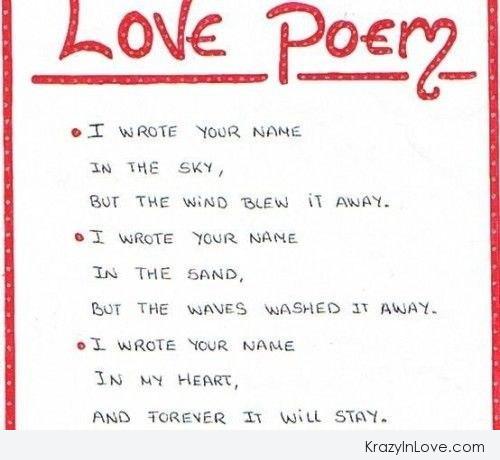 LOVE POEM
• I WROTE YOUR NAME
IN THE SKY,
BUT THE WIND BLEW IT AWAY.
• I WROTE YOUR NAME
IN THE SAND,
BUT THE WAVES WASHED IT AWAY.
• I WROTE YOUR NAME
IN MY HEART,
AND FOREVER IT WILL STAY.
KrazyInLove.com